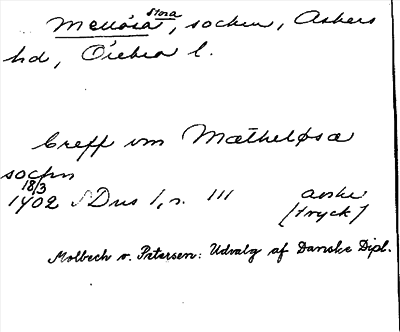 Mellösa, Stora, socken, Askers
hd, Örebro l.
Creff vm Mætheløsa
sochn
18/3
1402 SDns 1, n. 111 avskr
(tryck)
Molbech o. Petersen: Udvalg af Danske Dipl.